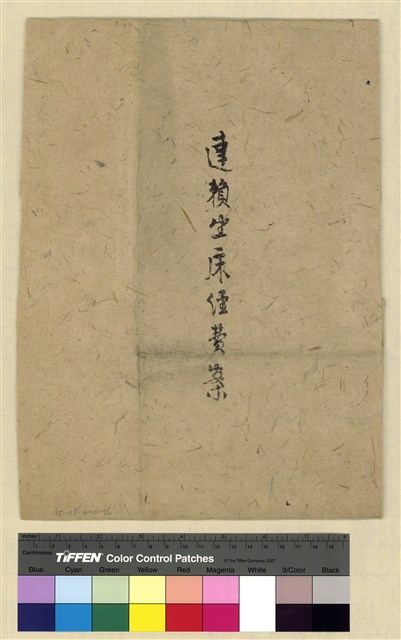 達賴坐床經費案
Inches
Centimetres
TIFFEN Color Control Patches
© The Tiffen Company, 2007
Blue Cyan Green Yellow Red Magenta White 3/Color Black